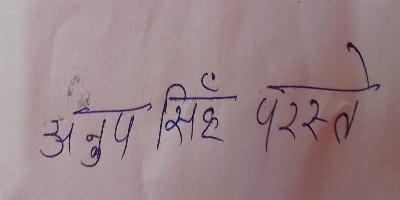 अनुप सिंह परस्ते